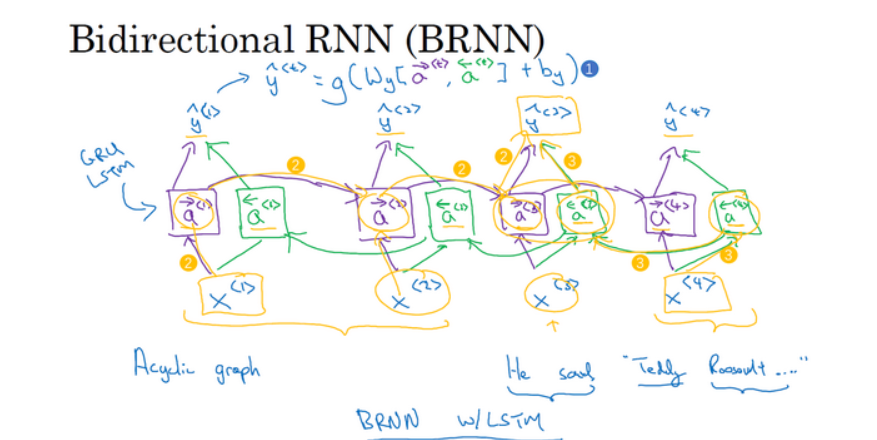 Bidirectional RNN (BRNN)
ŷ<t> = g(Wy[a→<t>, a←<t>] + by) 1
ŷ<1> ŷ<2> ŷ<3> ŷ<4>
GRU
LSTM
2 2 2 3
a→<1> a←<1> a→<2> a←<2> a→<3> a←<3> a→<4> a←<4>
2 3 3
x<1> x<2> x<3> x<4>
Acyclic graph He said, "Teddy Roosevelt...."
BRNN w/LSTM